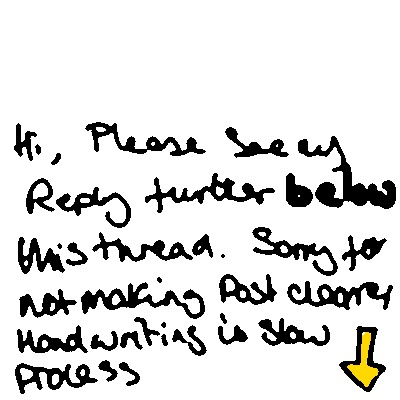 Hi, Please see my
Reply further below
this thread. Sorry for
not making Post clearer
Handwriting is slow
process